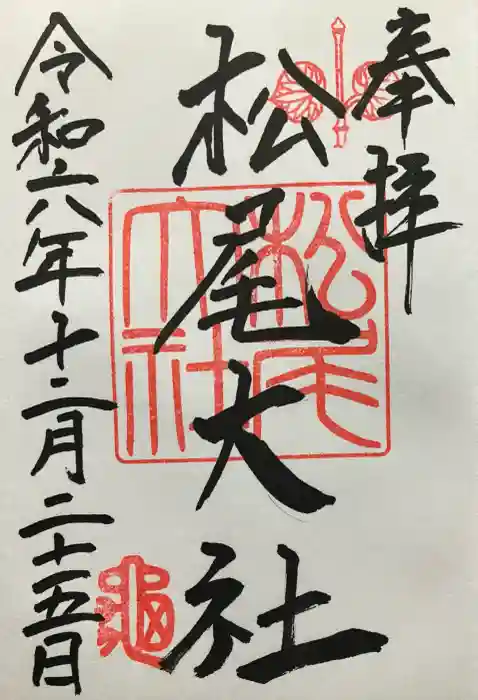 奉拝
松尾大社
令和六年十二月二十五日
松尾大社
亀